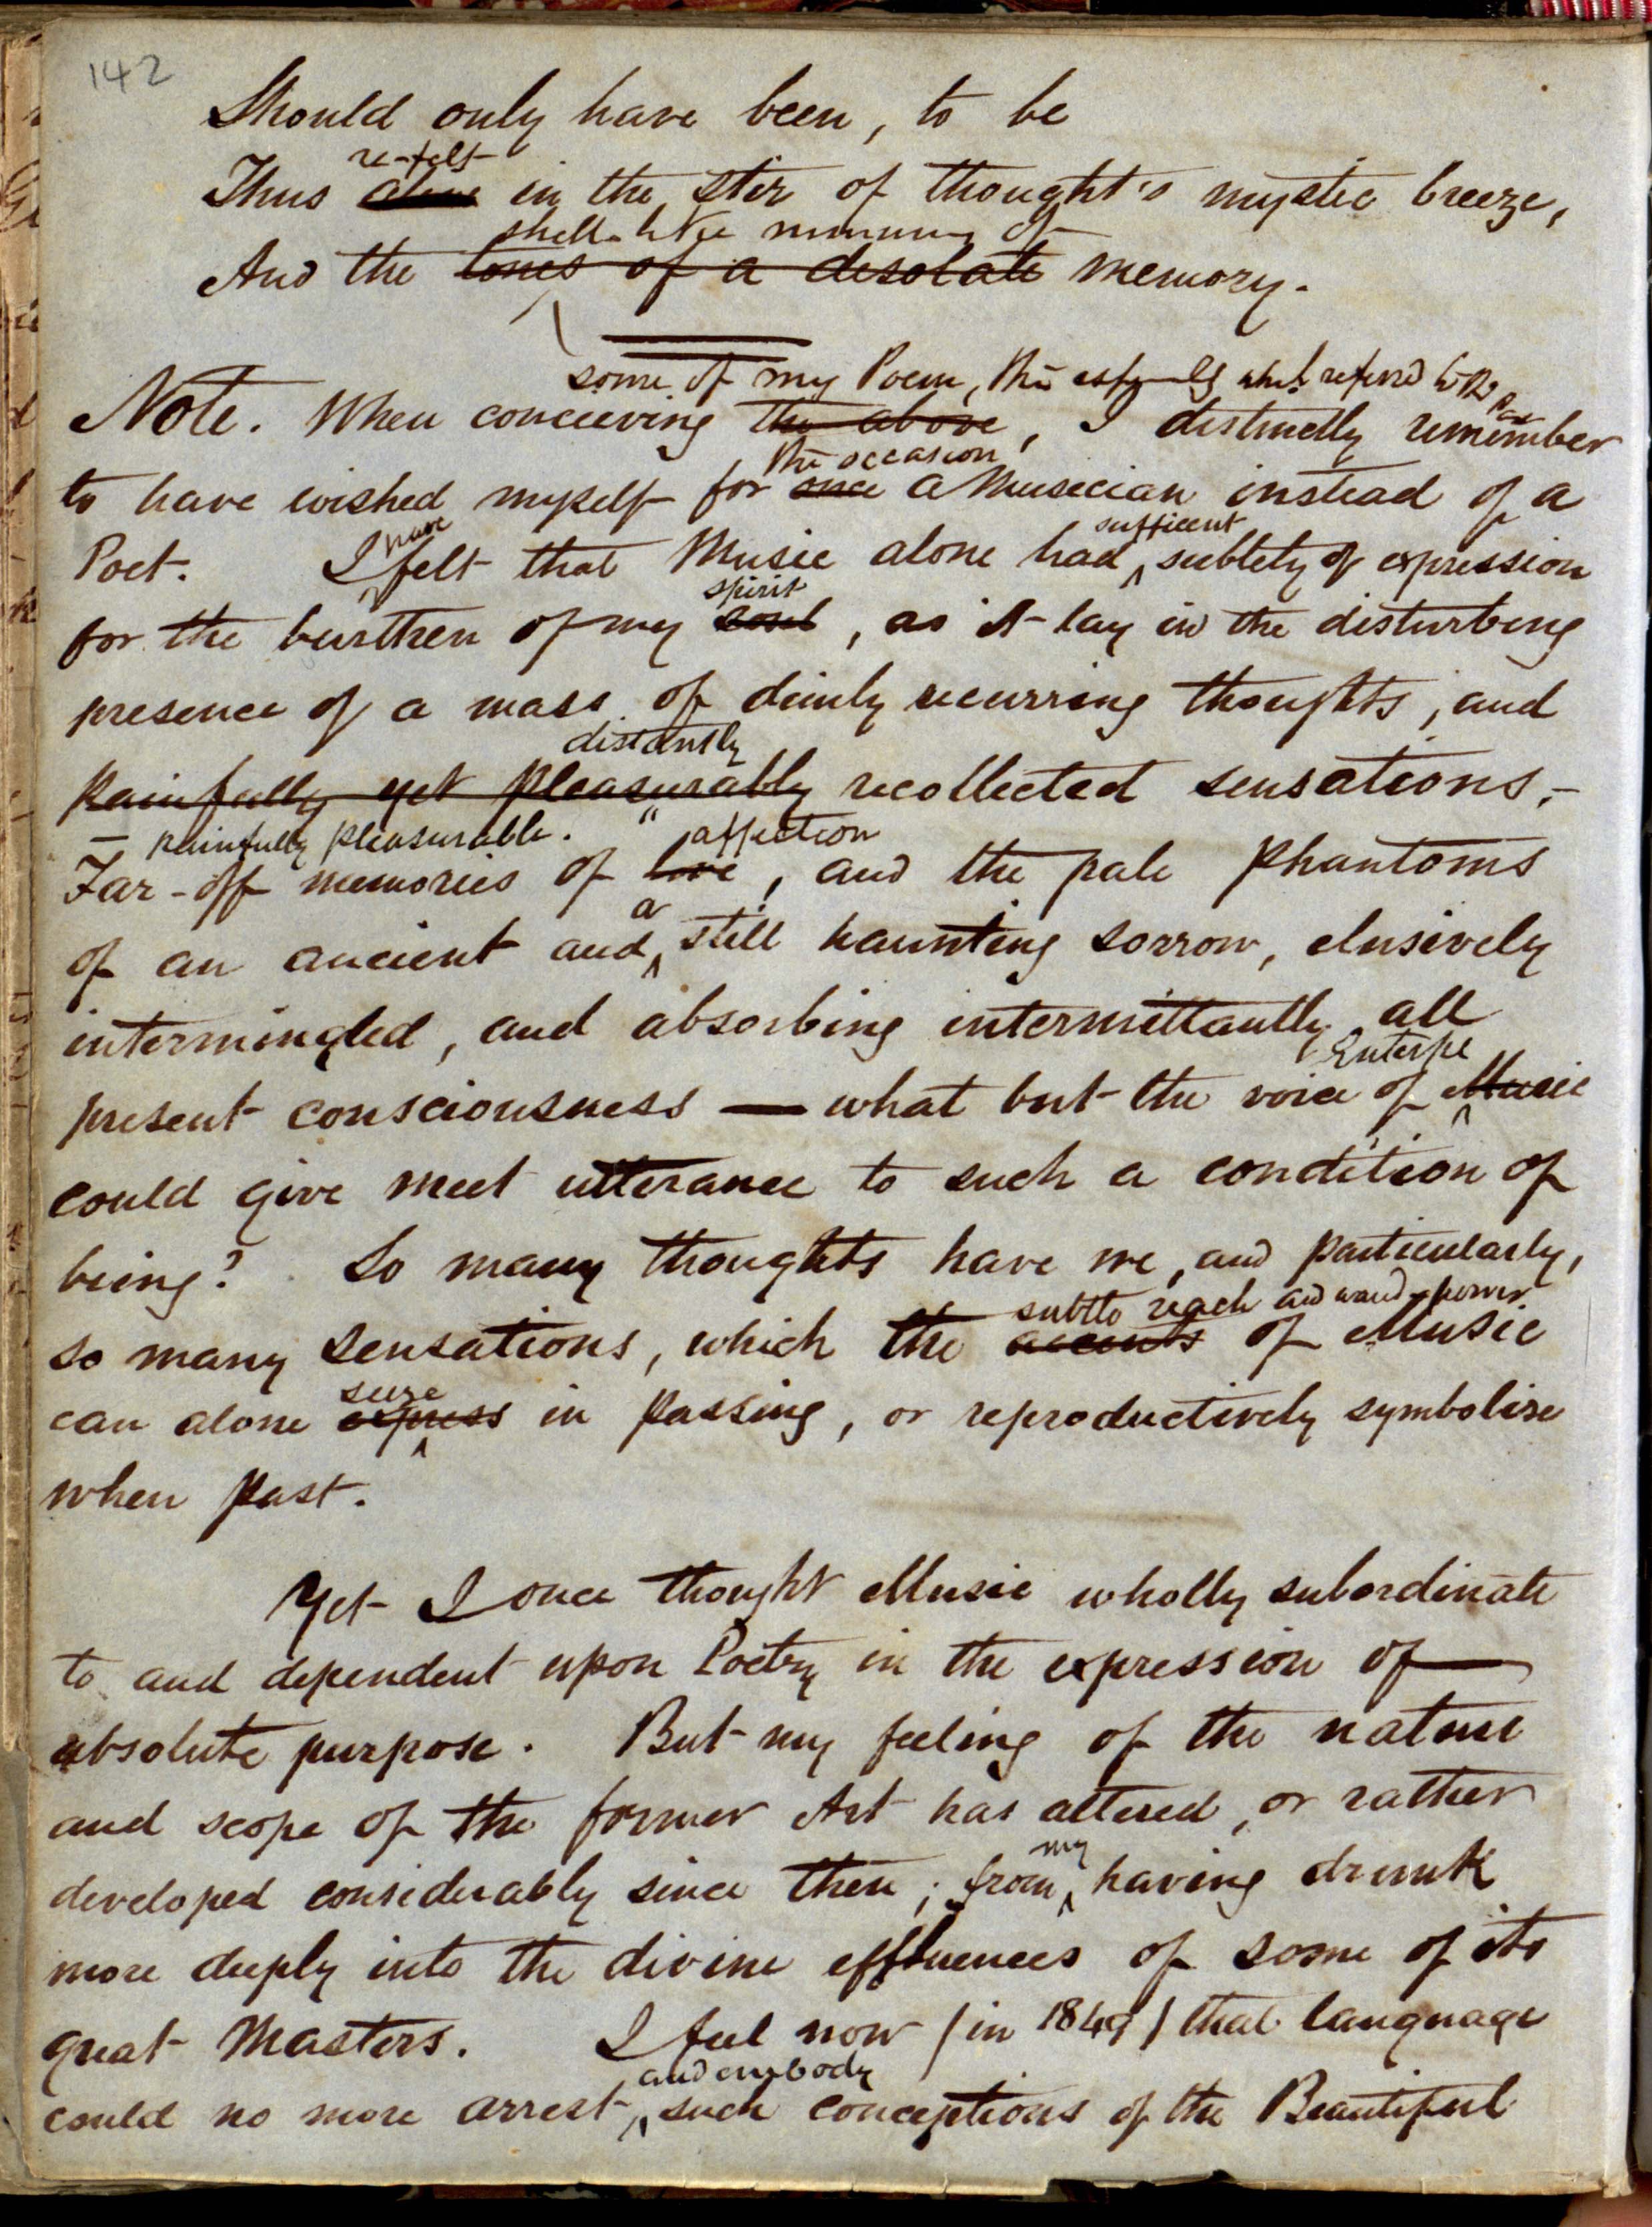 142
Should only have been, to be
re-felt
Thus alone in the stir of thought's mystic breeze,
shell-like murmur of
And the tones of a desolate memory.
some of my Poem, this especially which referred to the Past
Note. When conceiving the above, I distinctly remember
the occasion
to have wished myself for once a Musician instead of a
have sufficient
Poet. I felt that Music alone had subtlety of expression
spirit
for the burthen of my soul, as it lay in the disturbing
presence of a mass of dimly recurring thoughts, and
distantly
painfully yet pleasurably recollected sensations,-
— painfully pleasurable. affection
Far-off memories of love, and the pale phantoms
a
of an ancient and still haunting sorrow, elusively
intermingled, and absorbing intermittantly all
Euterpe
present consciousness — what but the voice of Music
could give meet utterance to such a condition of
being? So many thoughts have we, and particularly,
subtle reach and wand-power
so many sensations, which the accents of Music
seize
can alone express in passing, or reproductively symbolise
when past.
Yet I once thought Music wholly subordinate
to and dependent upon Poetry in the expression of
absolute purpose. But my feeling of the nature
and scope of the former Art has altered, or rather
my
developed considerably since then; from having drunk
more deeply into the divine effluences of some of its
great Masters. I feel now (in 1849) that language
and embody
could no more arrest such conceptions of the Beautiful